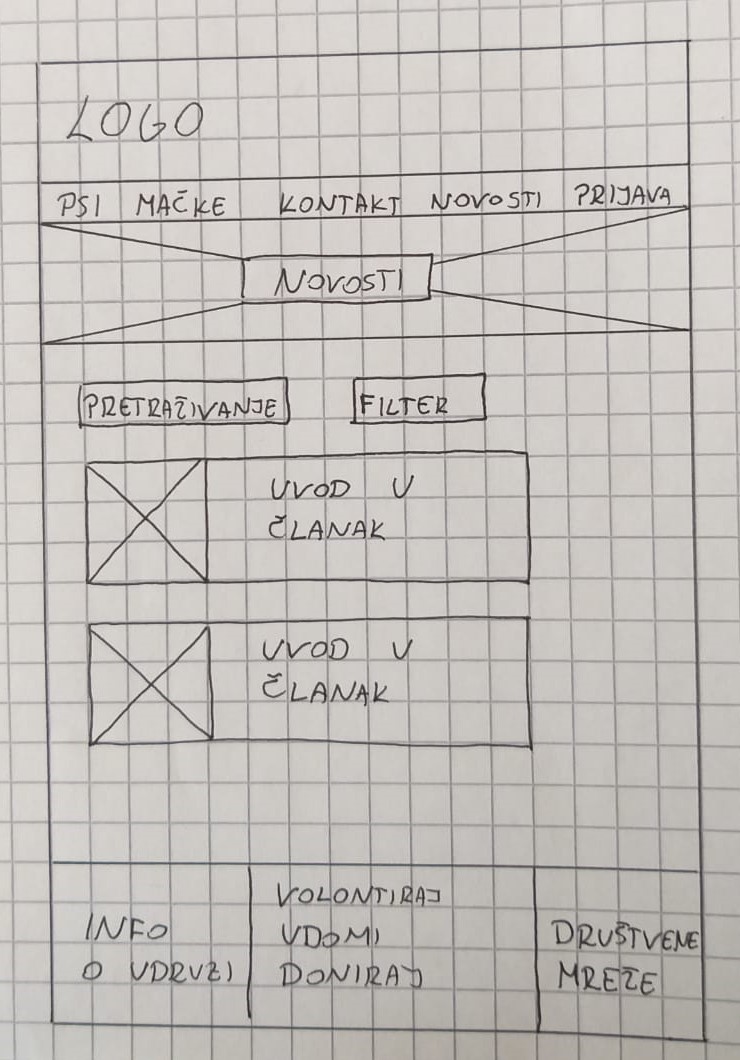 LOGO
PSI MAČKE KONTAKT NOVOSTI PRIJAVA
NOVOSTI
PRETRAŽIVANJE FILTER
UVOD U
ČLANAK
UVOD U
ČLANAK
INFO
O UDRUZI
VOLONTIRAJ
UDOMI
DONIRAJ
DRUŠTVENE
MREŽE